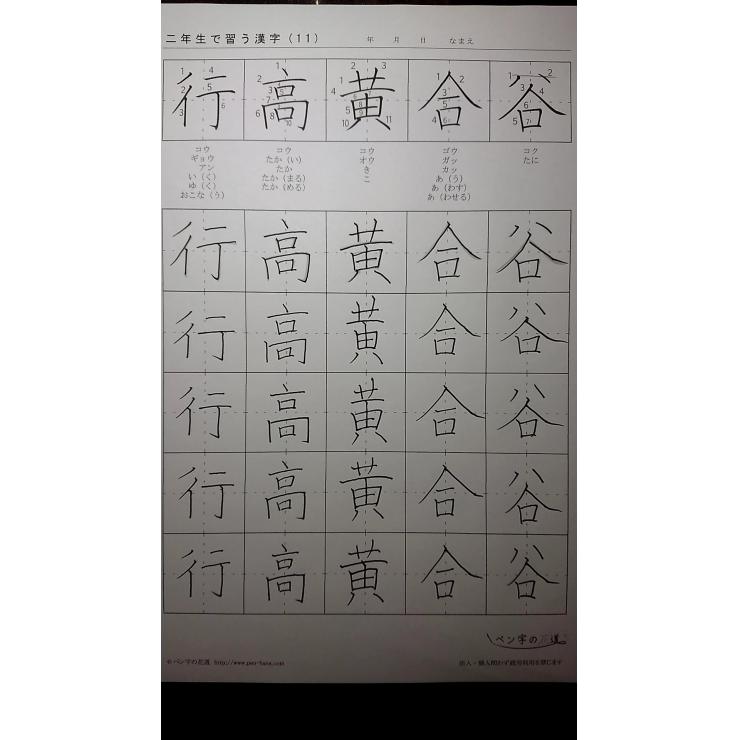 二年生で習う漢字（11） 年 月 日 なまえ
行 高 黄 合 谷
コウ コウ コウ ゴウ コク
ギョウ たか（い） オウ ガッ たに
アン たか き カッ
い（く） たか（まる） こ あ（う）
ゆ（く） たか（める） あ（わす）
おこな（う） あ（わせる）
行 高 黄 合 谷
行 高 黄 合 谷
行 高 黄 合 谷
行 高 黄 合 谷
行 高 黄 合 谷
ペン字の花道
©ペン字の花道 http://www.pen-hana.com 法人・個人問わず商用利用を禁じます